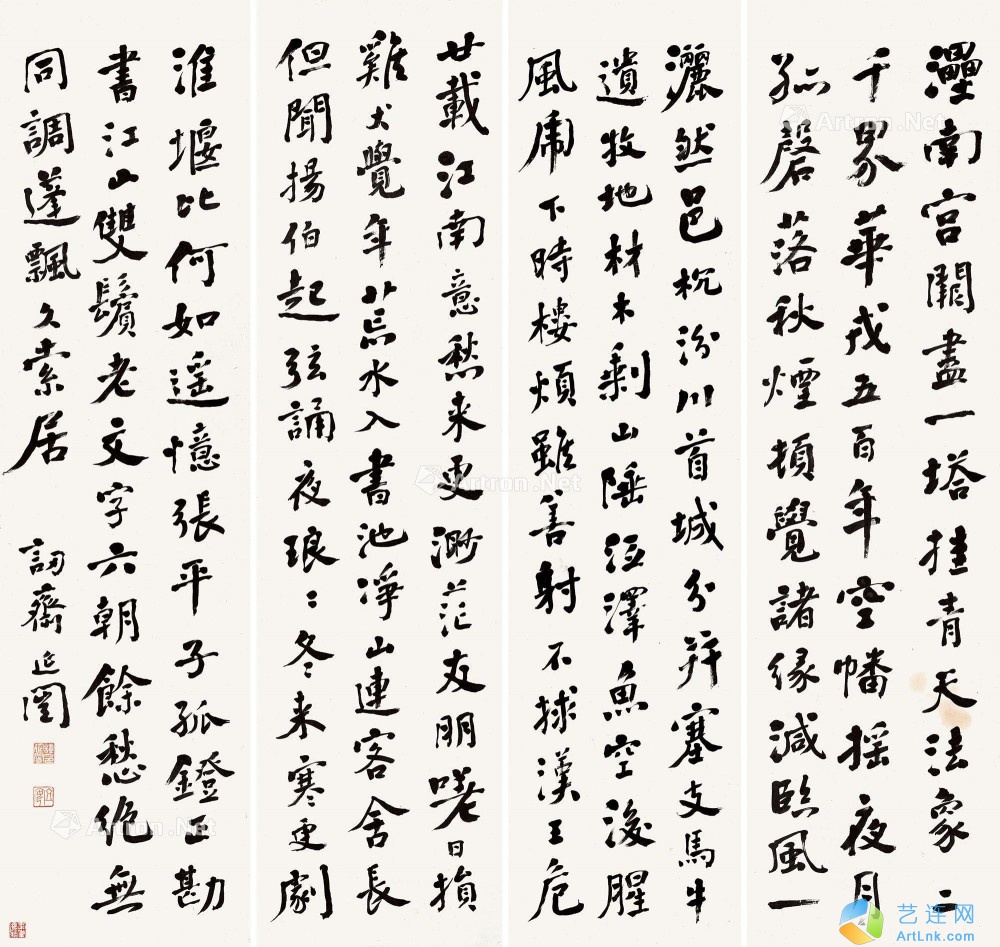 灅南宮闕盡一塔挂青天法象二
千界華戎五百年空幡搖夜月
孤磬落秋煙頓覺諸緣減臨風一
灑然邑枕汾川首城分幷塞支馬牛
遺牧地材木剩山陲澤魚空腥
風虎下時樓煩雖善射不捄漢王危
廿載江南意愁来更渺茫友朋嗟日損
雞犬覺年荒水入書池淨山連客舍長
但聞揚伯起弦誦夜琅〻冬来寒更劇
淮堰比何如遥憶張平子孤鐙正勘
書江山雙鬢老文字六朝餘愁絶無
同調蓬飄久索居 訒齋延闓
Artron.Net
Artron.Net
Artron.Net
Artron.Net
艺连网
ArtLnk.com